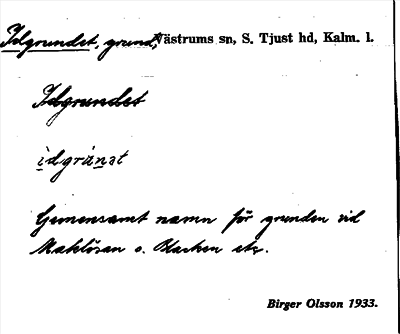 Idgrundet, grund, Västrums sn, S. Tjust hd, Kalm. l.
Idgrundet
ìdgrúnət
Gemensamt namn för grunden vid
Maklösan o. Blacken etc.
Birger Olsson 1933.